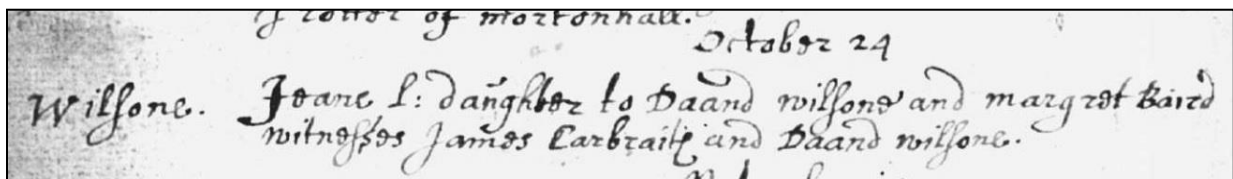 Trotter of mortonhall.
October 24
Wilsone. Jeane l: daughter to Daand wilsone and margret Baird
witnesses James Carbraith and Daand wilsone.